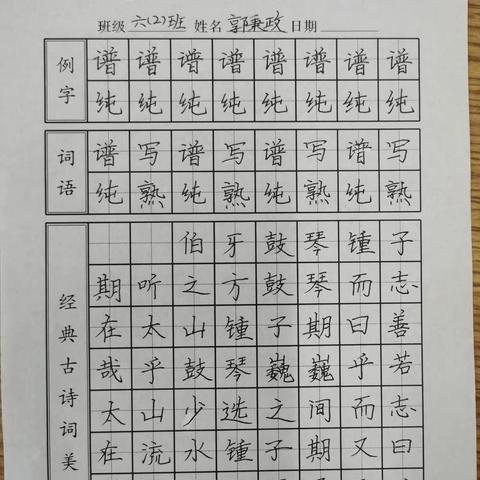 班级 六(2)班 姓名 郭秉政 日期
例字
谱谱谱谱谱谱谱谱
纯纯纯纯纯纯纯纯
词语
谱写谱写谱写谱写
纯熟纯熟纯熟纯熟
经典古诗词美
伯牙鼓琴锺子
期听之方鼓琴而志
在太山锺子期曰善
哉乎鼓琴巍巍乎若
太山少选之间而志
在流水锺子期又曰